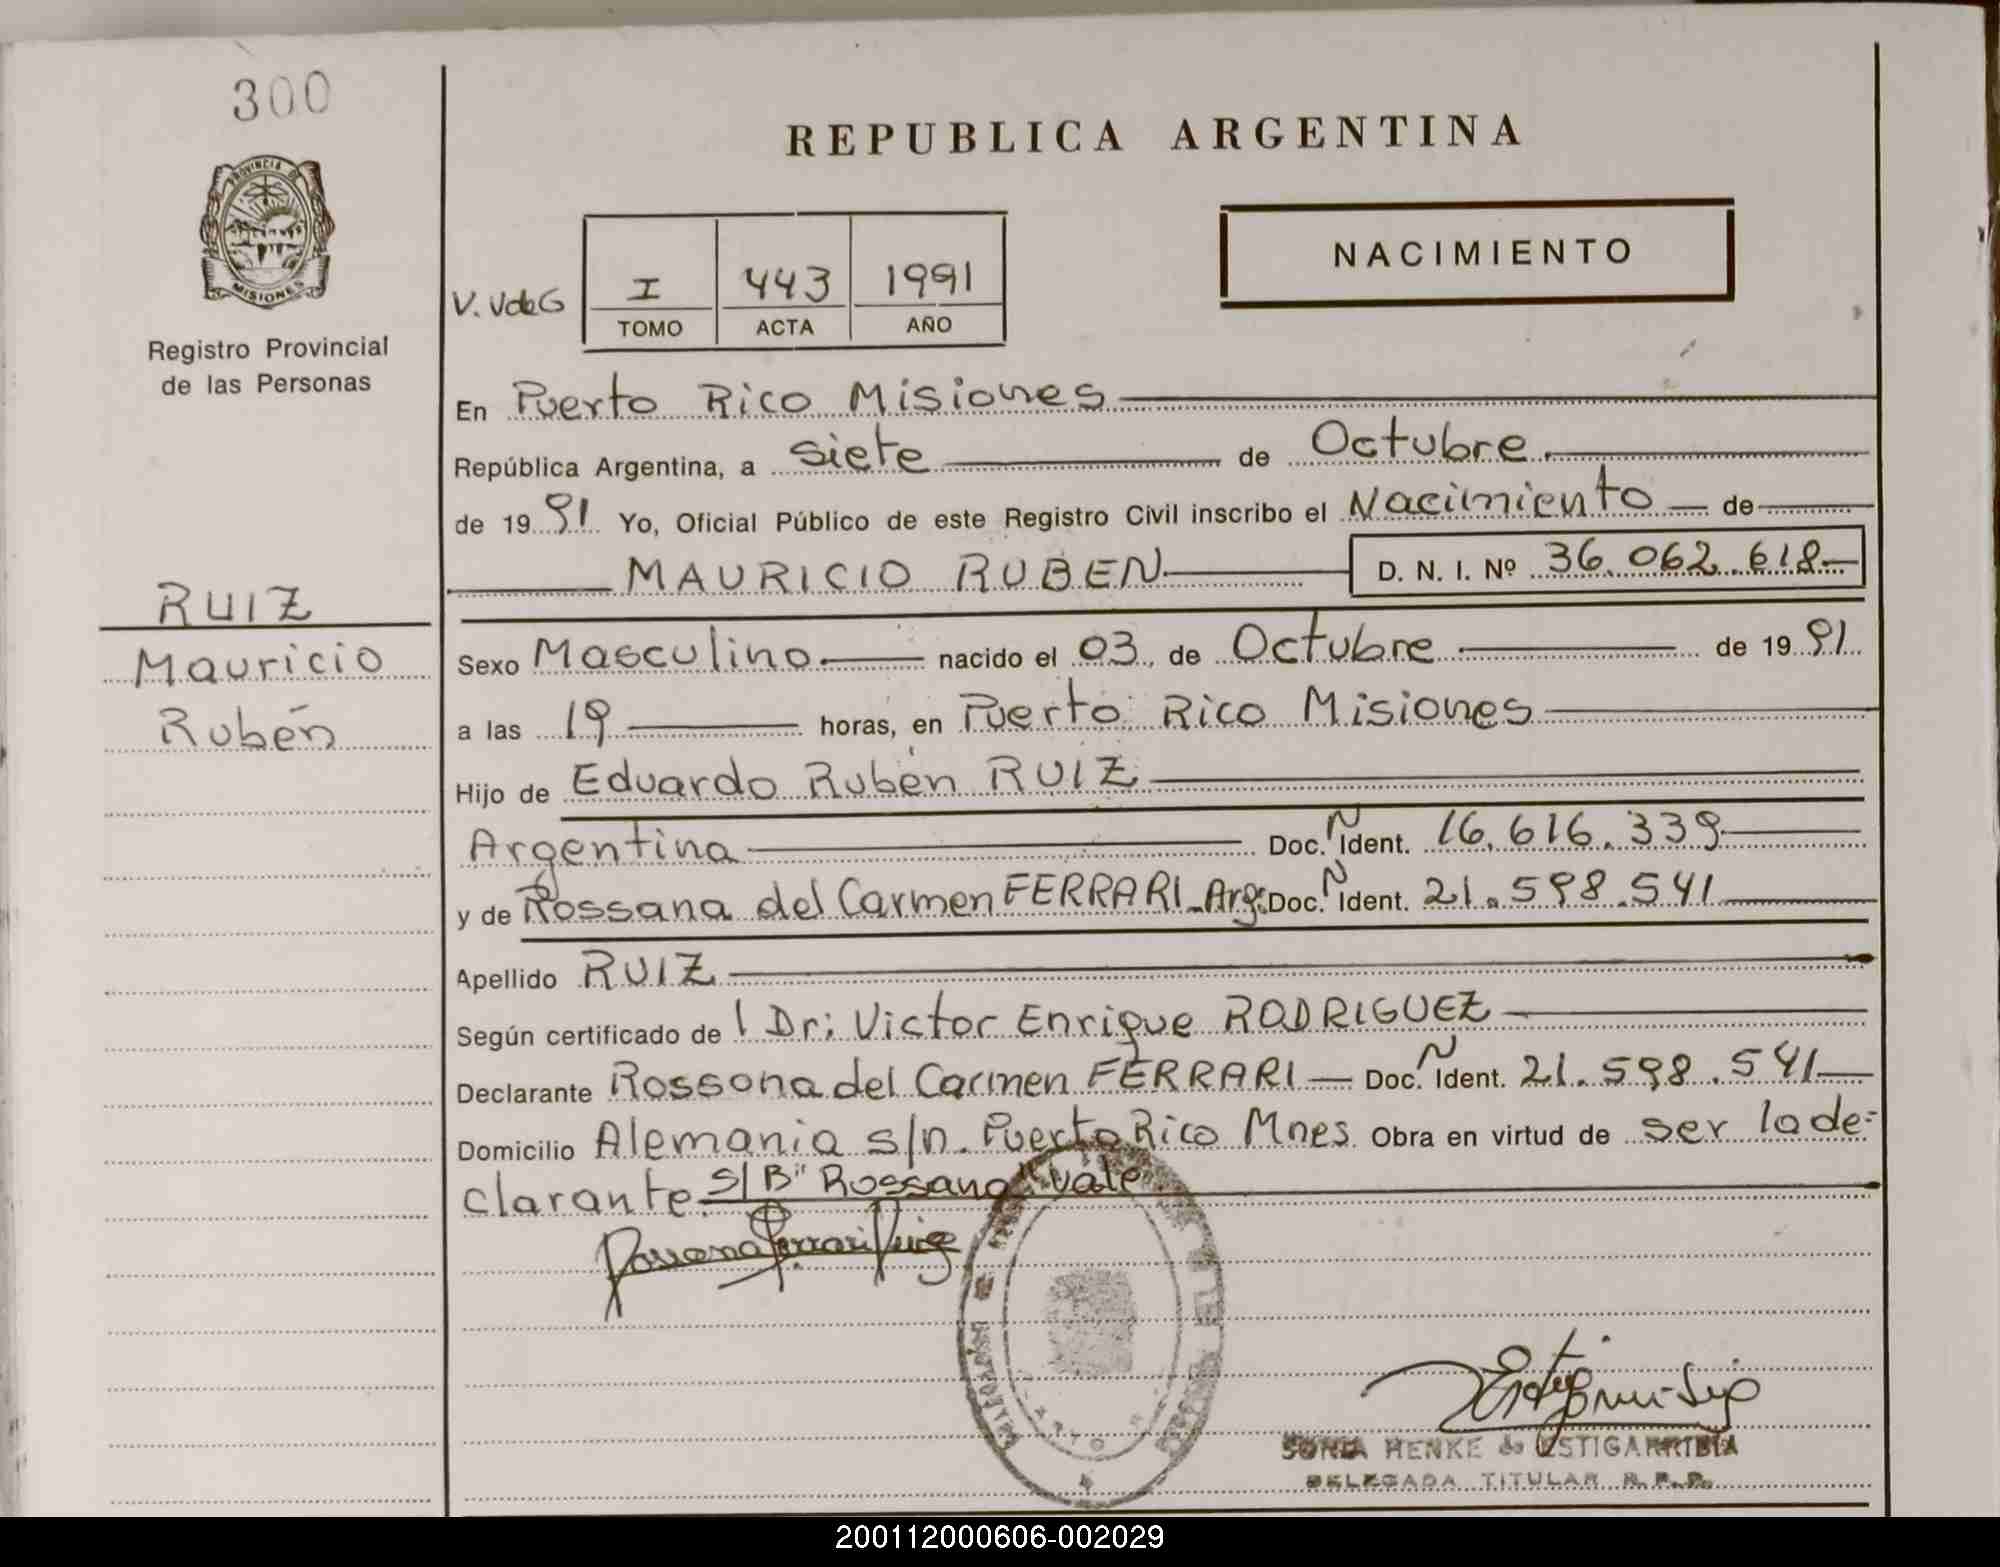 300
PROVINCIA DE
MISIONES
Registro Provincial
de las Personas
RUIZ
Mauricio
Rubén
REPUBLICA ARGENTINA
NACIMIENTO
V. VdeG
I 443 1991
TOMO ACTA AÑO
En Puerto Rico Misiones
República Argentina, a siete de Octubre
de 1991 Yo, Oficial Público de este Registro Civil inscribo el Nacimiento de
MAURICIO RUBEN D. N. I. Nº 36.062.618
Sexo Masculino nacido el 03 de Octubre de 1991
a las 19 horas, en Puerto Rico Misiones
Hijo de Eduardo Rubén RUIZ
Argentina Doc. N Ident. 16.616.339
y de Rossana del Carmen FERRARI Arg. Doc. N Ident. 21.598.541
Apellido RUIZ
Según certificado de l Dr: Victor Enrique RODRIGUEZ
Declarante Rossona del Carmen FERRARI Doc. N Ident. 21.598.541
Domicilio Alemania s/n. Puerto Rico Mnes. Obra en virtud de ser la de-
clarante. S/B" Rossana" Vale
SONIA HENKE de ESTIGARRIBIA
DELEGADA TITULAR R. P. P.
200112000606-002029